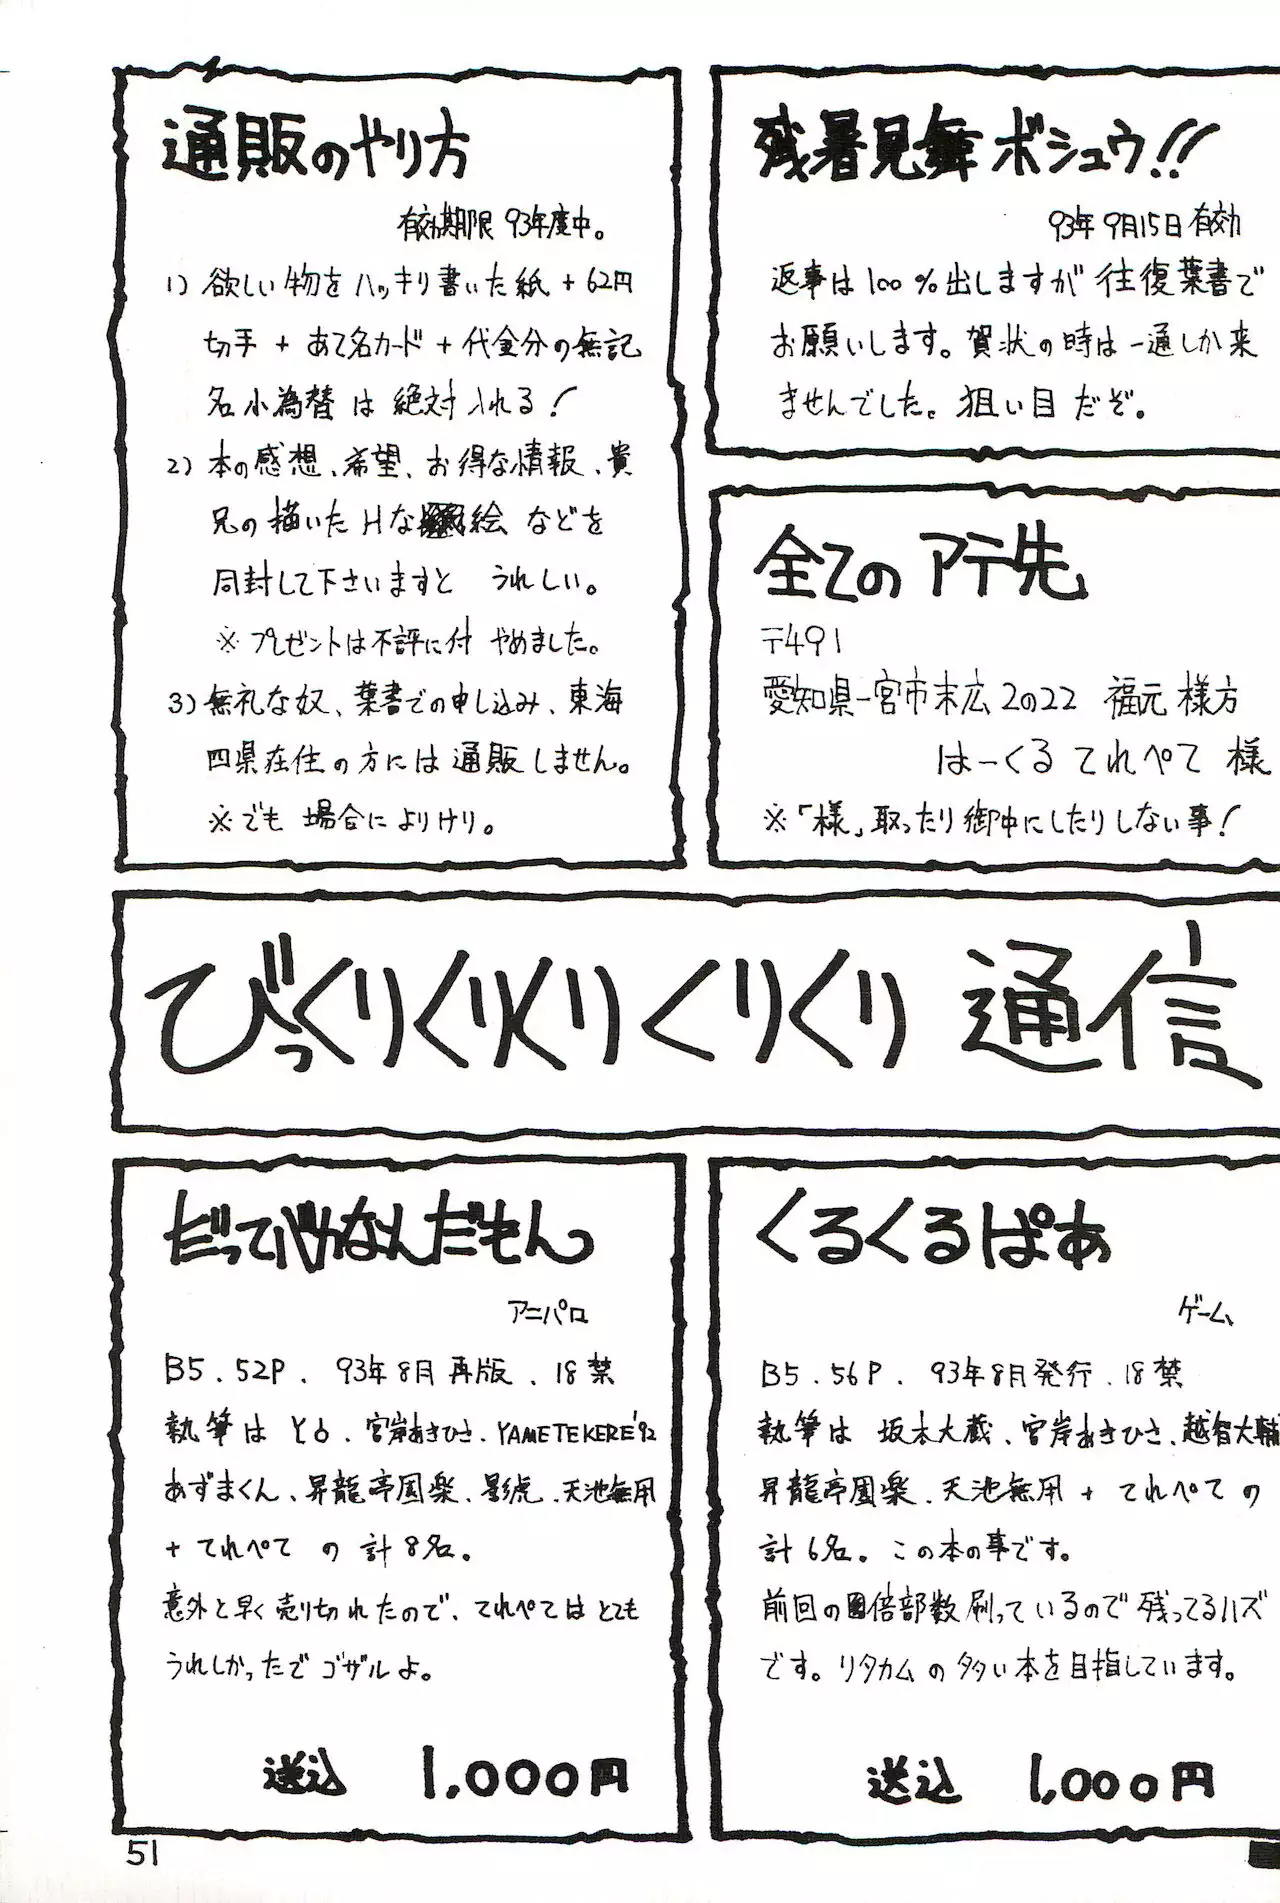 通販のやり方
有効期限 93年度中。
1) 欲しい物をハッキリ書いた紙 + 62円
切手 + あて名カード + 代金分の無記
名小為替は絶対入れる!
2) 本の感想、希望、お得な情報、貴
兄の描いたHな絵などを
同封して下さいますと うれしい。
※プレゼントは不評に付 やめました。
3) 無礼な奴、葉書での申し込み、東海
四県在住の方には通販しません。
※でも 場合によりけり。
残暑見舞ボシュウ!!
93年9月15日有効
返事は100%出しますが往復葉書で
お願いします。賀状の時は一通しか来
ませんでした。狙い目だぞ。
全てのアテ先
〒491
愛知県一宮市末広2の22 福元様方
はーくる てれぺて 様
※「様」取ったり御中にしたりしない事!
びっくりくりくりくりくり通信
だってバカなんだもんっ
アニパロ
B5.52P. 93年8月再版.18禁
執筆は と6.宮岸あきひさ.YAMETEKERE'92
あずまくん、昇龍亭圓楽、影虎、天池無用
+ てれぺて の 計8名。
意外と早く売り切れたので、てれぺてはとても
うれしかったでゴザルよ。
送込 1,000円
くるくるぱあ
ゲーム
B5.56P. 93年8月発行.18禁
執筆は 坂本大蔵、宮岸あきひさ、越智大輔
昇龍亭圓楽、天池無用 + てれぺての
計6名。この本の事です。
前回の倍部数刷っているので残ってるハズ
です。リタカムの多い本を目指しています。
送込 1,000円
51